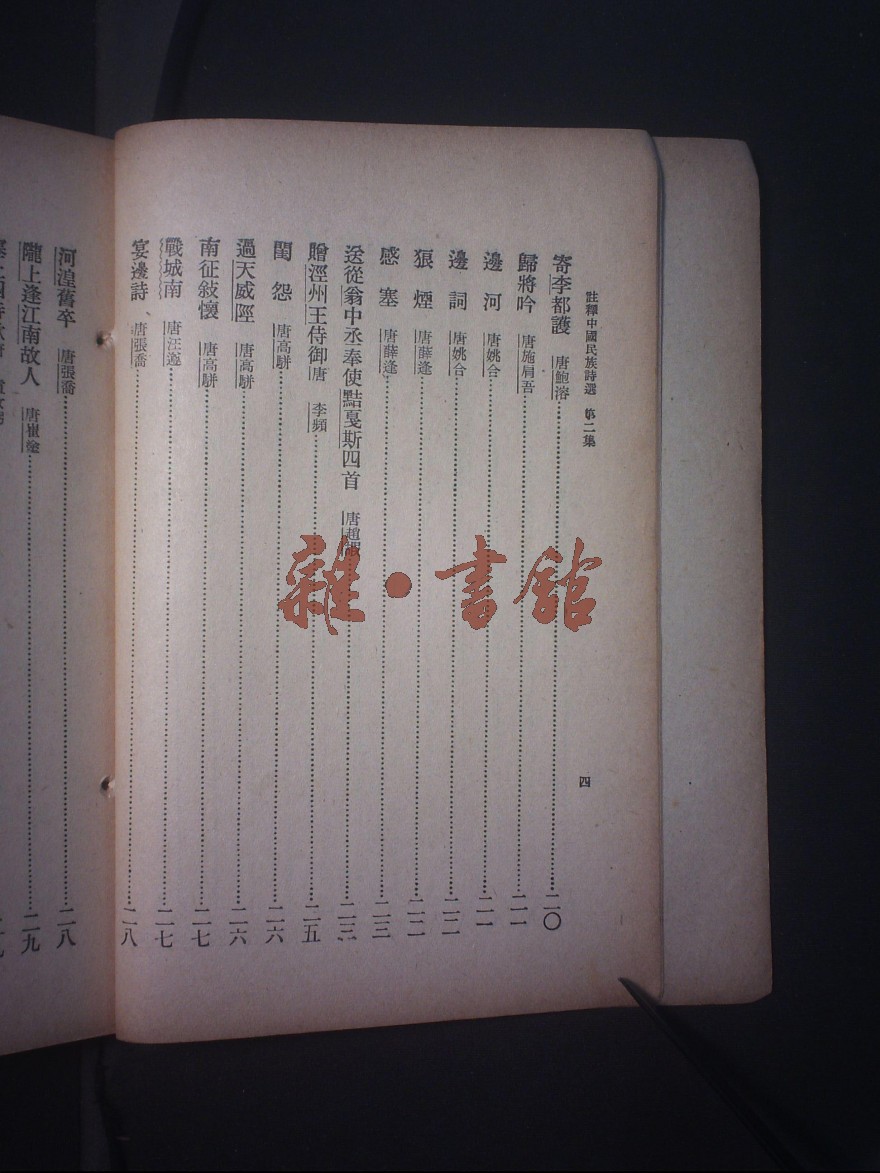 註釋中國民族詩選 第二集
四
寄李都護 唐鮑溶 二〇
歸將吟 唐施肩吾 二一
邊河 唐姚合 二一
邊詞 唐姚合 二二
狼煙 唐薛逢 二二
感塞 唐薛逢 二三
送從翁中丞奉使黠戛斯四首 唐趙嘏 二三
贈涇州王侍御 唐李頻 二五
閨怨 唐高駢 二六
過天威陘 唐高駢 二六
南征敍懷 唐高駢 二七
戰城南 唐汪遵 二七
宴邊詩 唐張喬 二八
河湟舊卒 唐張喬 二八
隴上逢江南故人 唐崔塗 二九
雜·書館